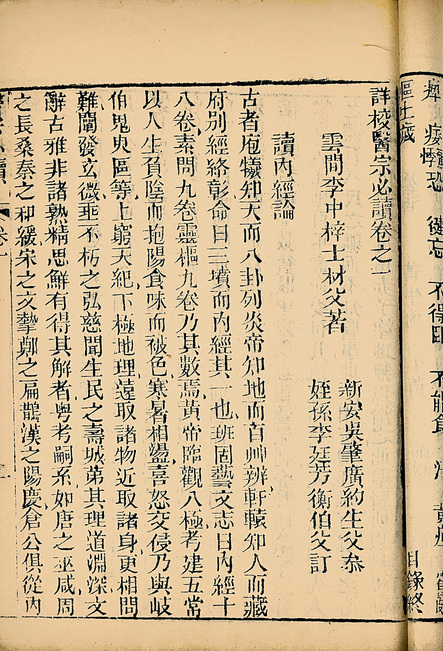 痺 痿 驚 恐 健忘 不得臥 不能食
目錄終
詳校醫宗必讀卷之一
雲間李中梓士材父著
新安吳肇廣約生父叅
姪孫李廷芳衡伯父訂
讀內經論
古者庖犧知天而八卦列炎帝知地而百艸辨軒轅知人而藏
府別經絡彰命曰三墳而內經其一也班固藝文志曰內經十
八卷素問九卷靈樞九卷乃其數焉黃帝臨觀八極考建五常
以人生負陰而抱陽食味而被色寒暑相盪喜怒交侵乃與岐
伯鬼臾區等上窮天紀下極地理遠取諸物近取諸身更相問
難闡發玄微垂不朽之弘慈開生民之壽域苐其理道淵深文
辭古雅非諸熟精思鮮有得其解者粤考嗣系如唐之巫咸周
之長桑秦之和緩宋之文摯鄭之扁鵲漢之陽慶倉公俱從內